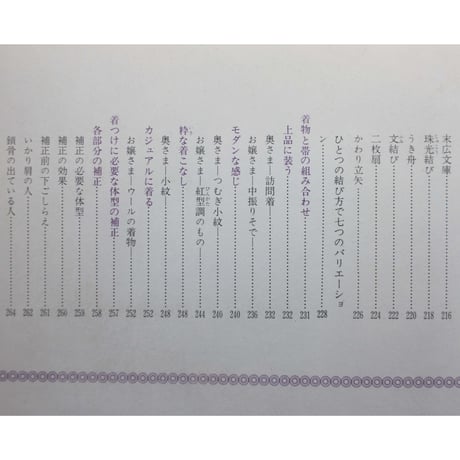 末広文庫……216
珠光結び……218
うき舟……220
文結び……222
二枚扇……224
かわり立矢……226
ひとつの結び方で七つのバリエーショ
ン……228
着物と帯の組み合わせ……231
上品に装う……232
奥さま―訪問着……232
お嬢さま―中振りそで……236
モダンな感じ……240
奥さま―つむぎ小紋……240
お嬢さま―紅型調のもの……244
粋な着こなし……248
奥さま―小紋……248
カジュアルに着る……252
お嬢さま―ウールの着物……252
着つけに必要な体型の補正……257
各部分の補正……258
補正の必要な体型……259
補正の効果……260
補正前の下ごしらえ……261
いかり肩の人……262
鎖骨の出ている人……264